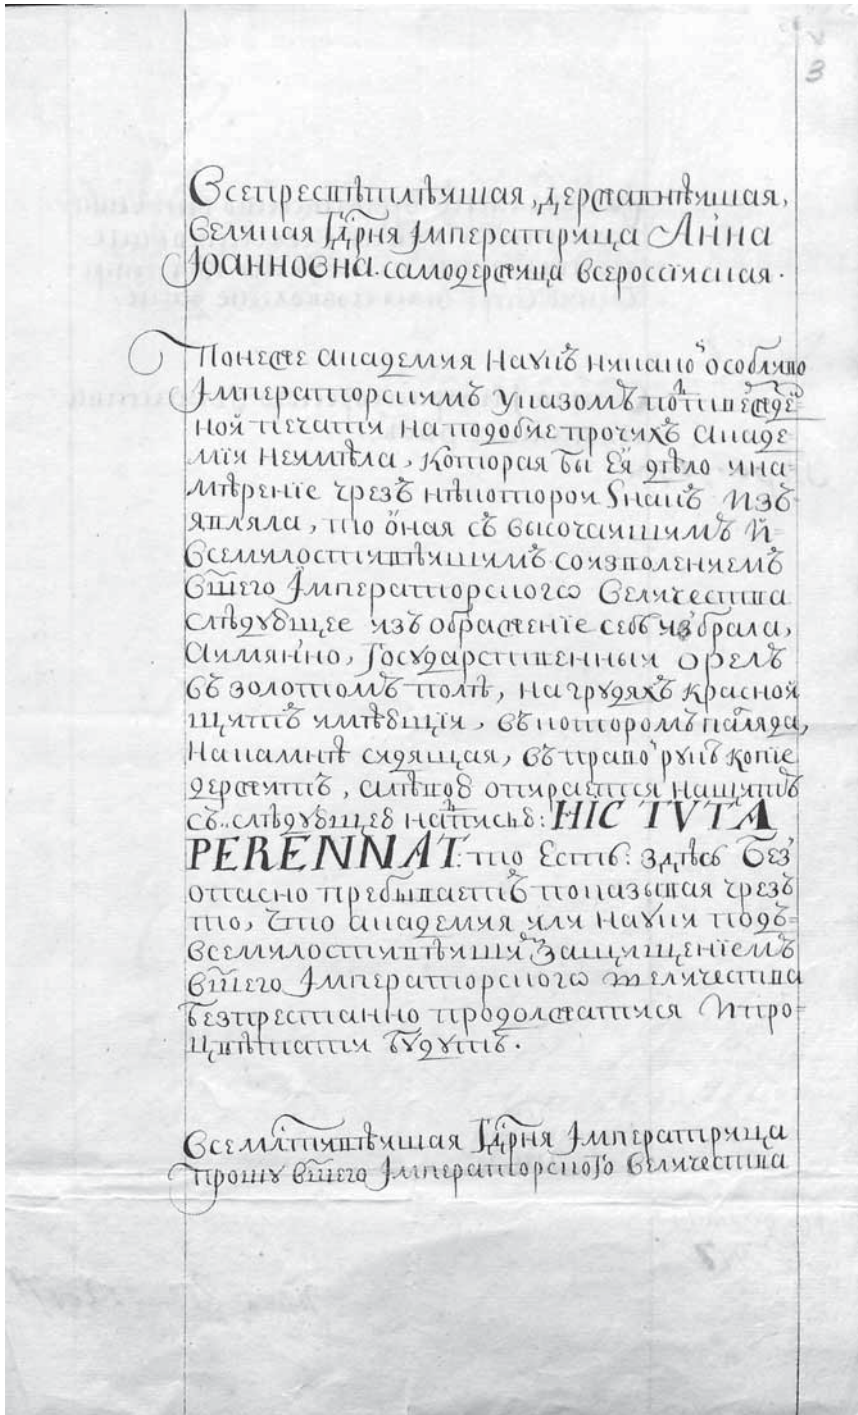 3
Всепресвѣтлѣишая, державнѣишая,
великая Гд҃рня Імператрица Анна
Іоанновна. самодержица всероссииская.
Понеже академия наукъ никакои особливо
Імператорскимъ указомъ потвержде-
ной печати наподобие прочихъ акаде-
мїи неимѣла, которая бы ея дѣло ина-
мѣренїе чрезъ нѣкоторои знакъ изъ-
являла, то оная съ высочаишимъ и
всемилостивѣишимъ соизволениемъ
вш҃его Імператорского величества
слѣдующее изъображенїе себѣ избрала,
аимянно, Государственныи орелъ
въ золотомъ полѣ, на грудяхъ красной
щитъ имѣющїи, въ которомъ паллада,
накамнѣ сидящая, въ правои рукѣ копие
держитъ, алѣвою опирается нащитъ
съ слѣдующею надписью: HIC TVTA
PERENNAT: то есть: здѣсь без
опасно пребываетъ показывая чрезъ
то, что академия или науки подъ
всемилостивѣишимъ защищенїемъ
вш҃его Імператорского величества
безпрестанно продолжатися ипро-
цвѣтати будутъ.
Всемлⷭ҇тивѣишая Гд҃рня Імператрица
прошу вш҃его Імператорского величества